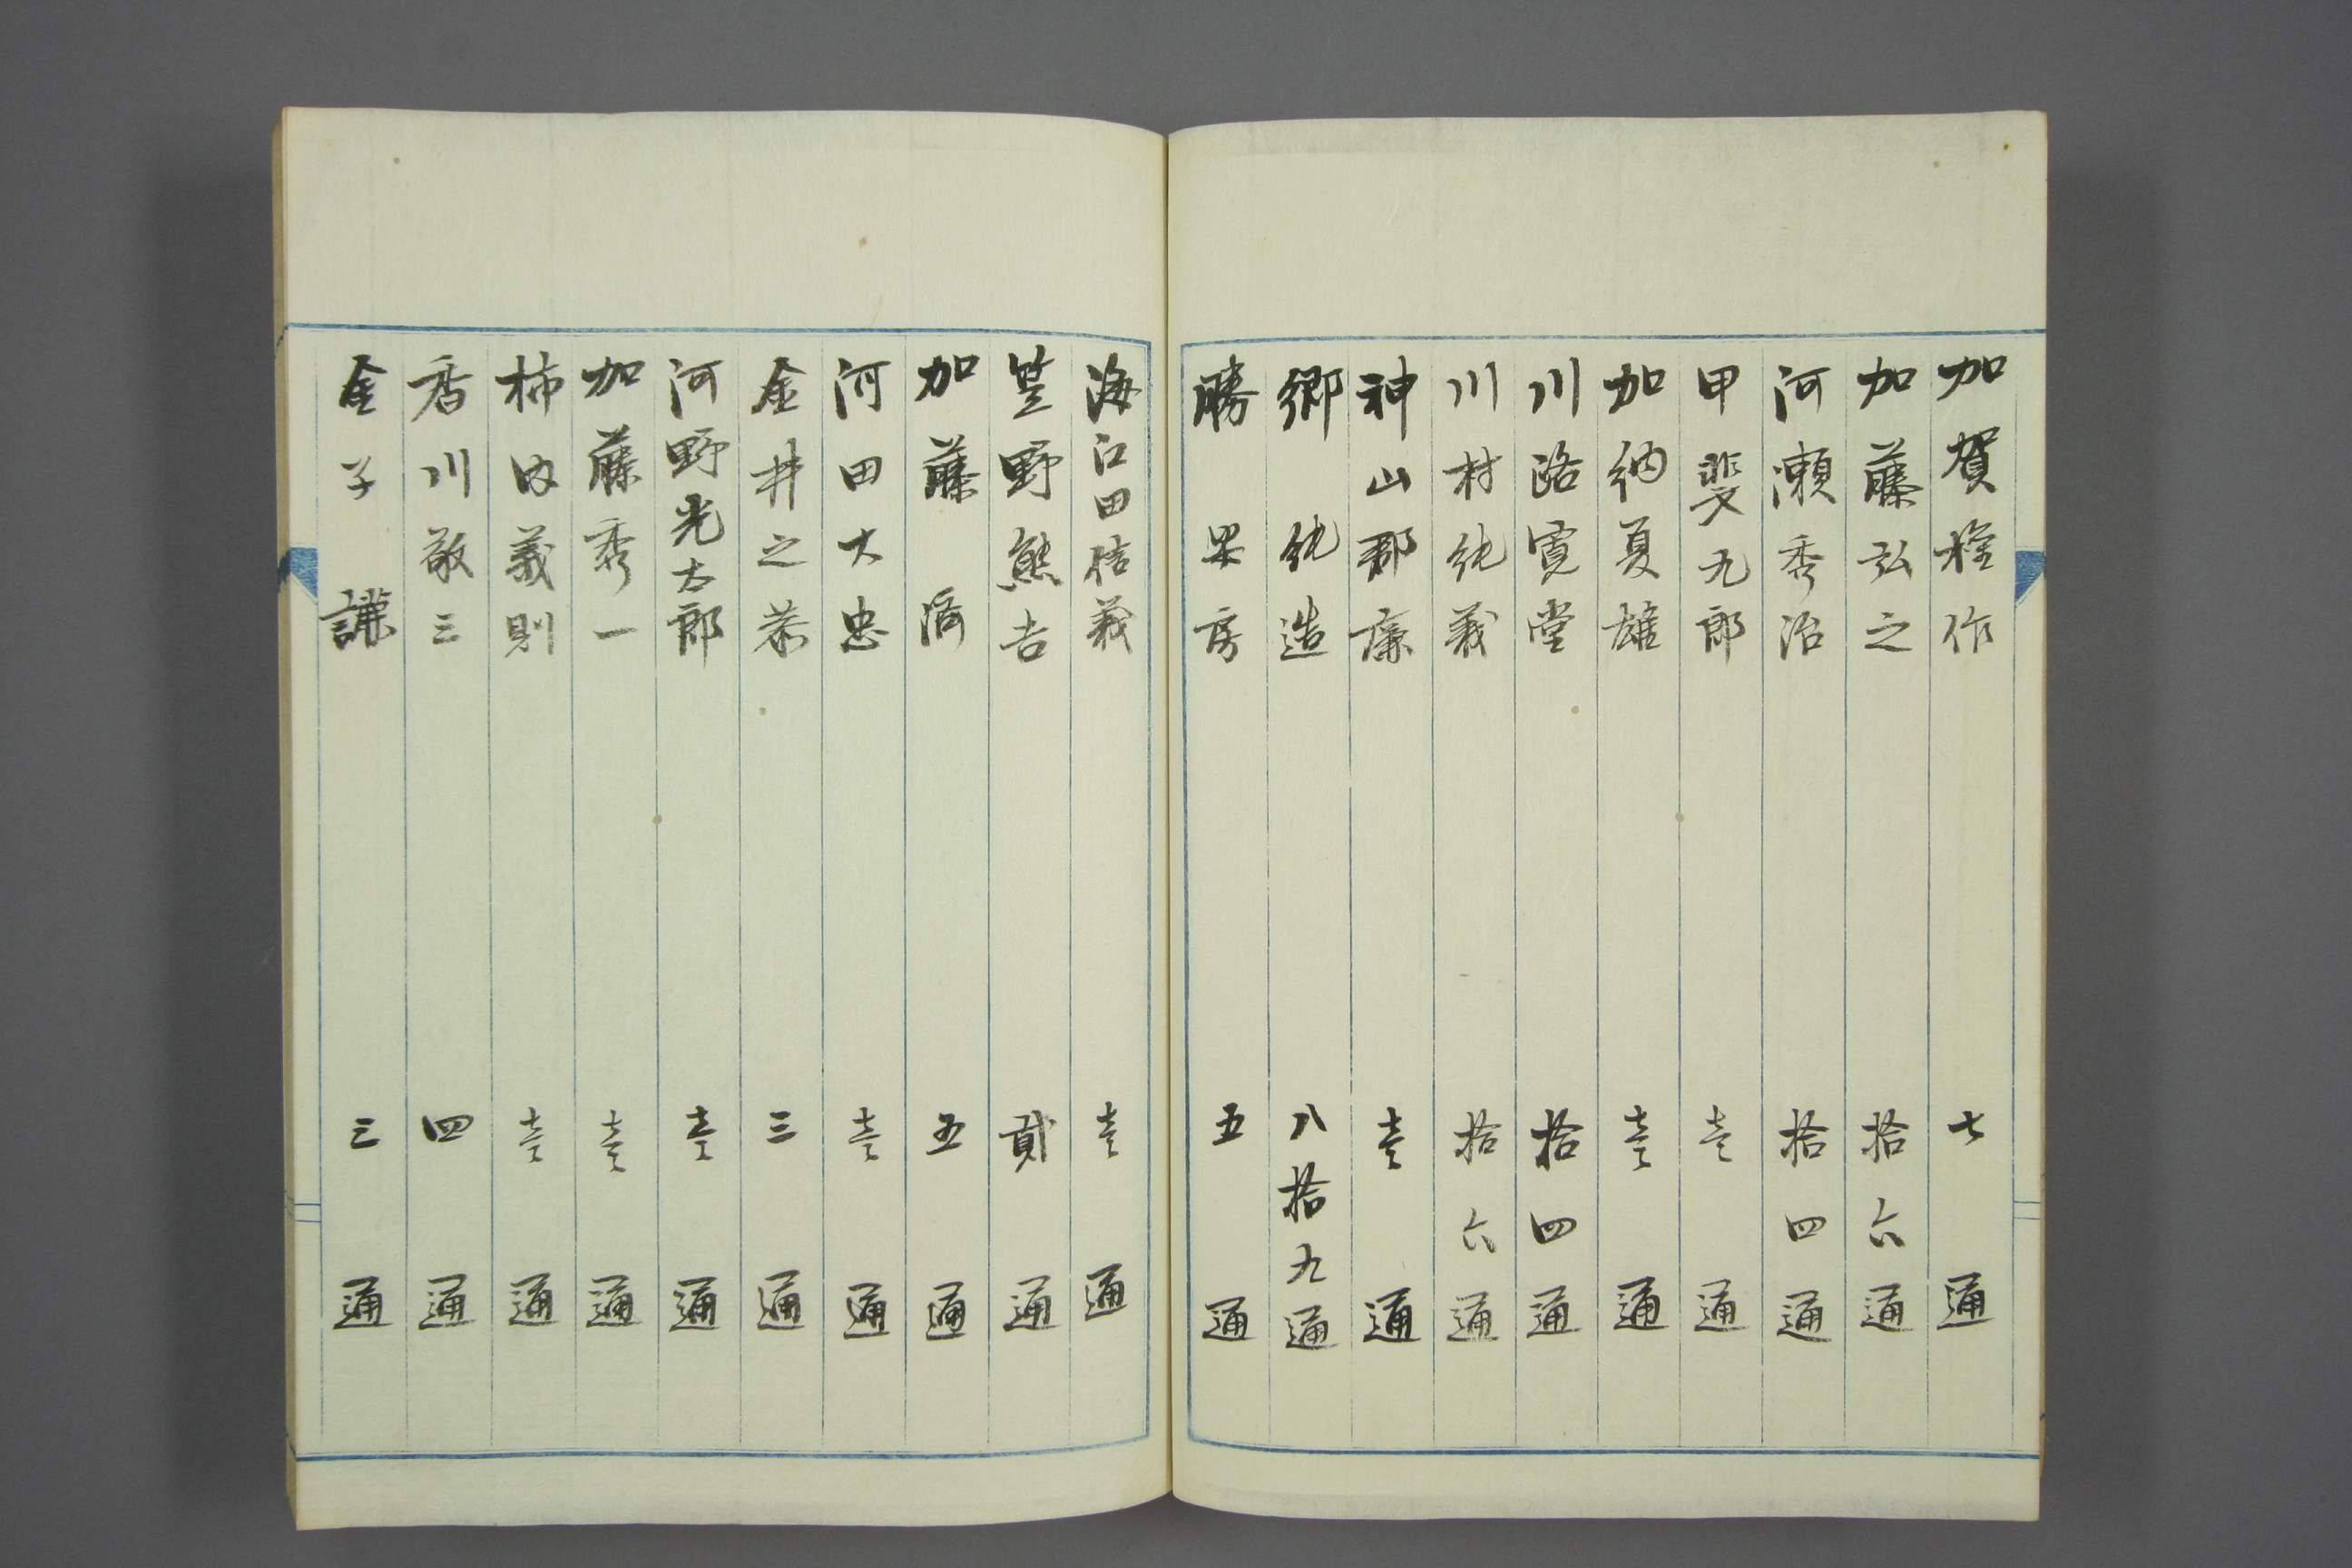 加賀権作　七通
加藤弘之　拾六通
河瀬秀治　拾四通
甲斐九郎　壹通
加納夏雄　壹通
川路寛堂　拾四通
川村純義　拾六通
神山郡廉　壹通
郷純造　八拾九通
勝　房　五通
海江田信義　壹通
笠野熊吉　貳通
加藤済　五通
河田大忠　壹通
金井之恭　三通
河野光太郎　壹通
加藤秀一　壹通
柿内義則　壹通
香川敬三　四通
金子謙　三通